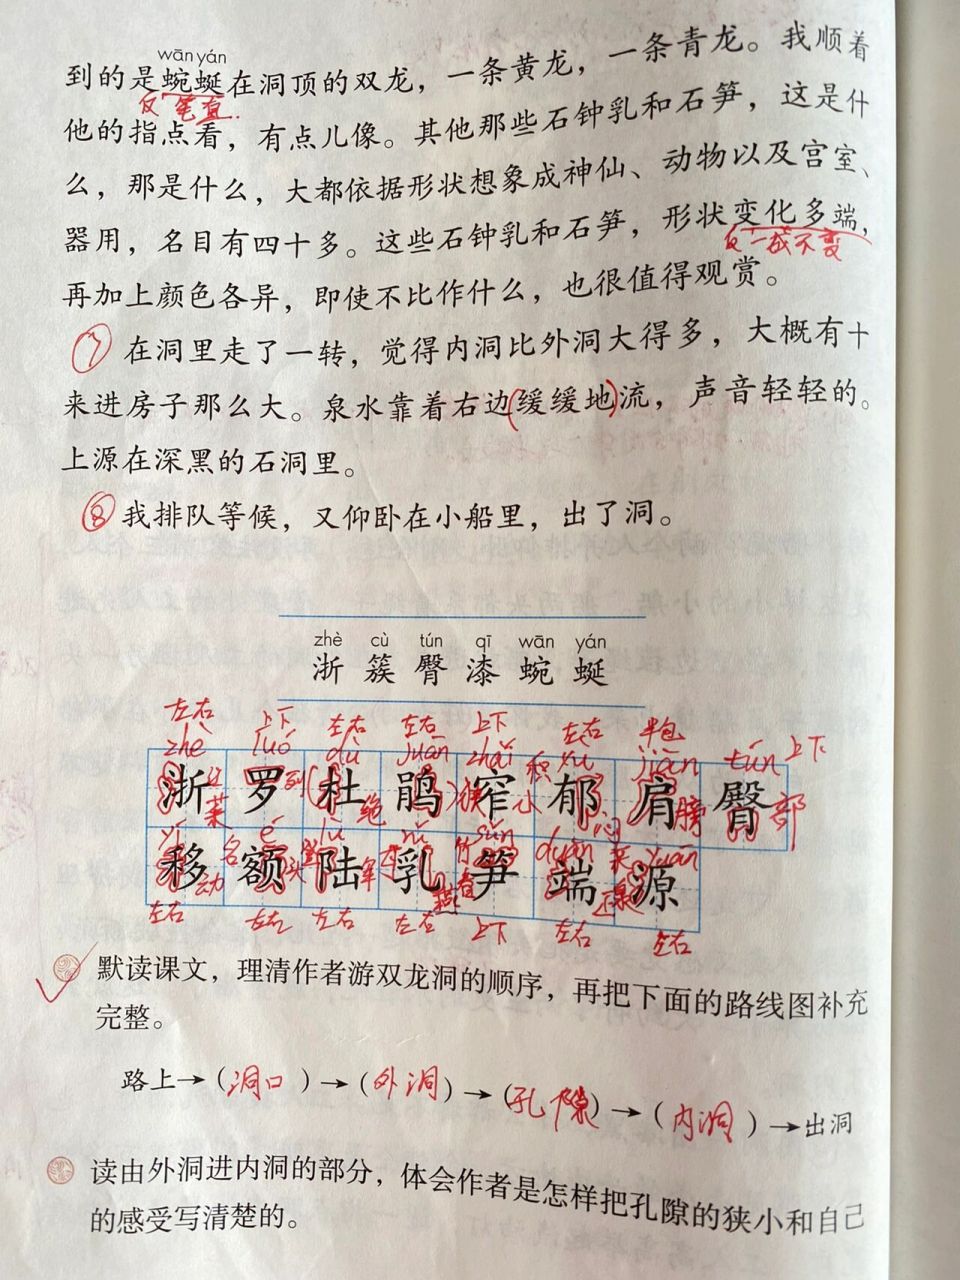 wān yán
到的是蜿蜒在洞顶的双龙，一条黄龙，一条青龙。我顺着
反 笔直.
他的指点看，有点儿像。其他那些石钟乳和石笋，这是什
么，那是什么，大都依据形状想象成神仙、动物以及宫室、
器用，名目有四十多。这些石钟乳和石笋，形状变化多端，
反 一成不变
再加上颜色各异，即使不比作什么，也很值得观赏。
⑦ 在洞里走了一转，觉得内洞比外洞大得多，大概有十
来进房子那么大。泉水靠着右边(缓缓地)流，声音轻轻的。
上源在深黑的石洞里。
⑧ 我排队等候，又仰卧在小船里，出了洞。
zhè cù tún qī wān yán
浙 簇 臀 漆 蜿 蜒
左右 上下 左右 左右 上下 左右 半包 上下
zhè luó dù juān zhǎi yù jiān tún
浙江 罗列 杜绝 鹃 窄小 郁 肩膀 臀部
yí é lù rǔ sǔn duān yuán
移动 额头 陆军 乳 笋 端 源
左右 左右 左右 左右 上下 左右 左右
默读课文，理清作者游双龙洞的顺序，再把下面的路线图补充
完整。
路上→(洞口)→(外洞)→(孔隙)→(内洞)→出洞
读由外洞进内洞的部分，体会作者是怎样把孔隙的狭小和自己
的感受写清楚的。